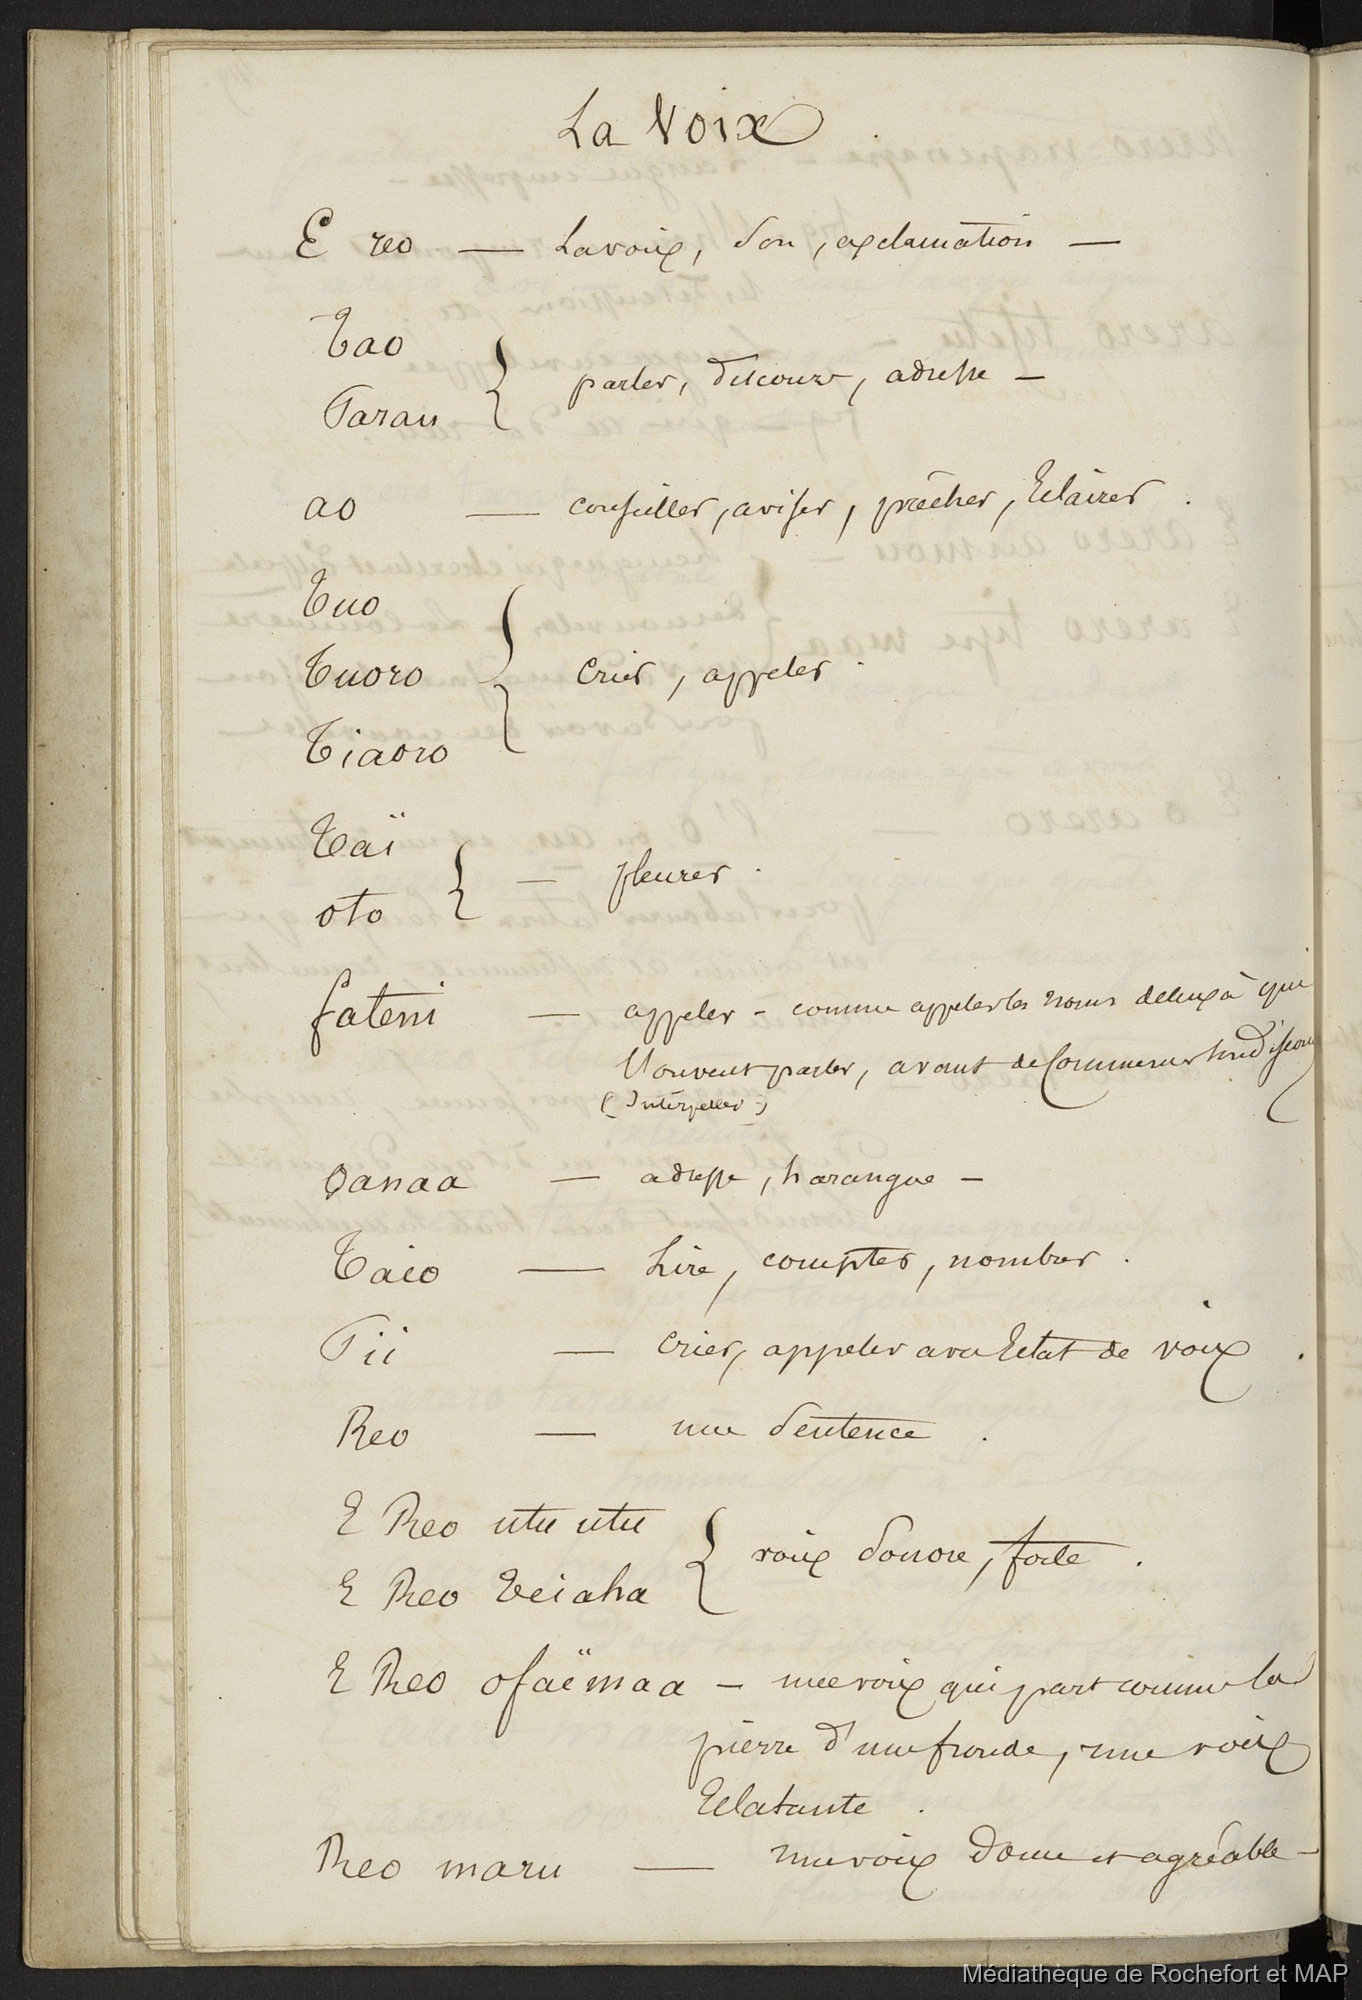 La Voix
E reo — La voix, son, exclamation —
Tao
Parau
parler, discours, adresse —
ao — conseiller, aviser, prêcher, Eclairer.
Tuo
Tuoro
Tiaoro
Crier, appeler.
Taï
oto
— pleurer.
fateni — appeler - comme appeler les noms de ceux à qui
l'on veut parler, avant de Commencer un discours
(Interpeller)
Oanaa — adresse, harangue —
Taio — Lire, compter, nombrer.
Pii — Crier, appeler avec Eclat de voix.
Reo — une Sentence.
E Reo utu utu
E Reo teiaha
voix sonore, forte.
E Reo ofaïmaa — une voix qui part comme la
pierre d'une fronde, une voix
Eclatante.
Reo maru — une voix douce et agréable —
Médiathèque de Rochefort et MAP